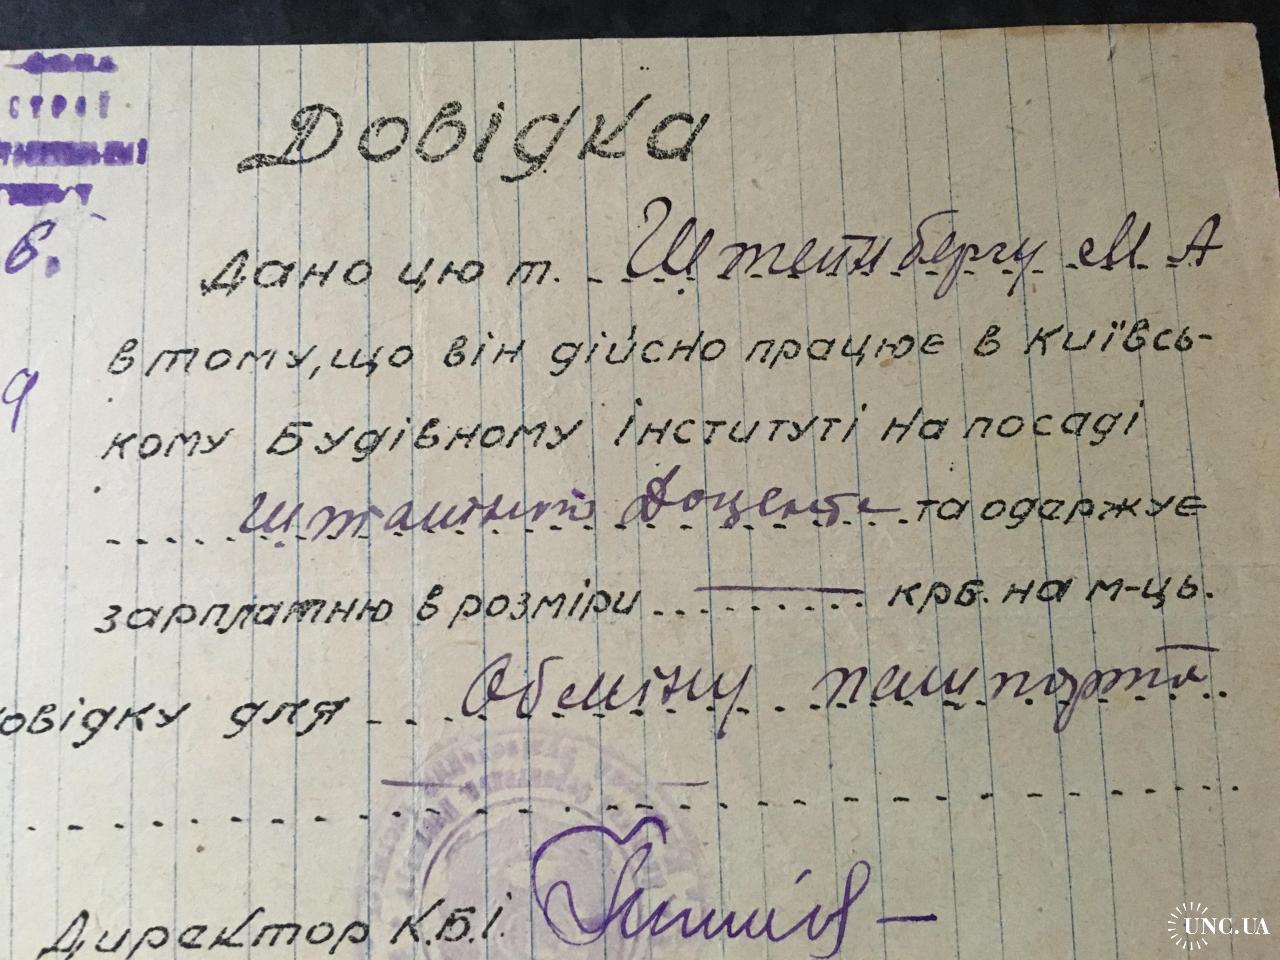 СТРОЇ
Довідка
6.
Дано цю т. Штейнбергу М А
9
в тому, що він дійсно працює в Київсь-
кому Будівному Інституті на посаді
Штатного Доцента та одержує
зарплатню в розміри — крб. на м-ць.
овідку для Обміну пашпорта
Директор К.Б.І.
UNC.UA